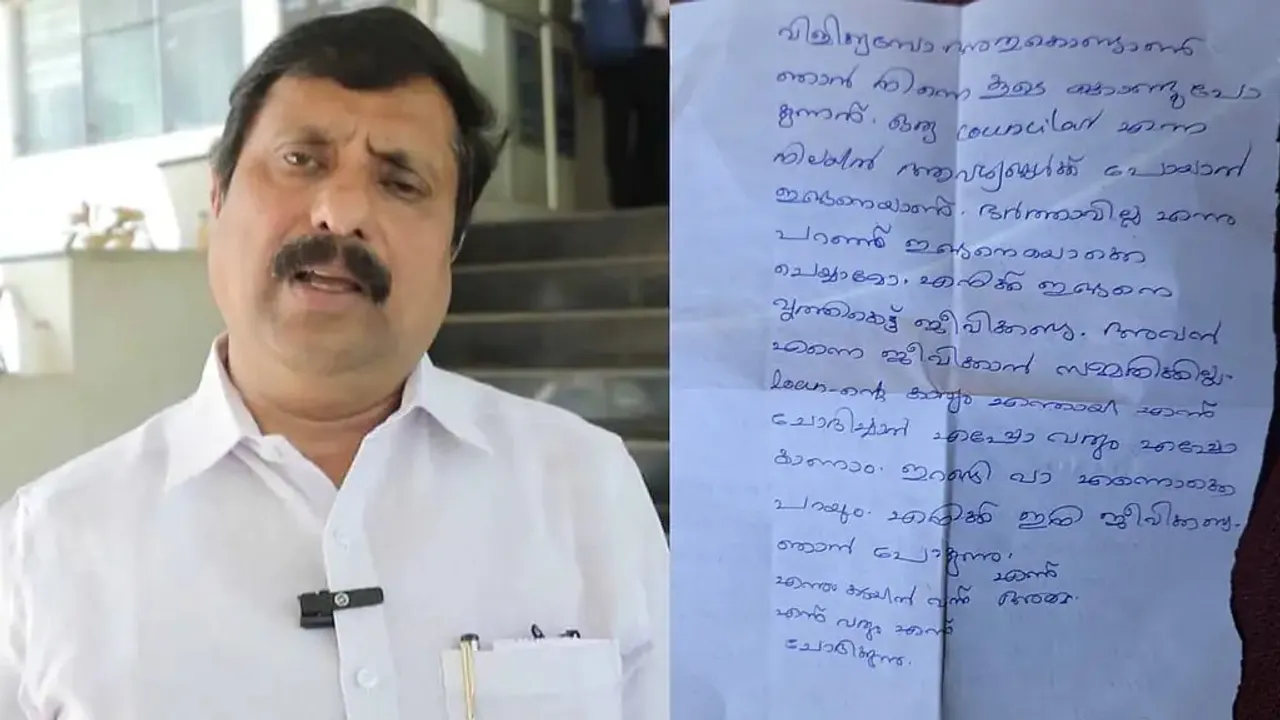 വിളിയുമ്പോ അതുകൊണ്ടാണ്
ഞാൻ നിന്നെ കൂടെ കൊണ്ടുപോ
കുന്നത്. ഒരു councilar എന്ന
നിലയിൽ ആവശ്യങ്ങൾക്ക് പോയാൻ
ഇങ്ങനെയാണ്. ഭർത്താവില്ല എന്നു
പറഞ്ഞ് ഇങ്ങനെയൊക്കെ
ചെയ്യാമോ. എനിക്ക് ഇങ്ങനെ
വൃത്തികെട്ട് ജീവിക്കണ്ട. അവൻ
എന്നെ ജീവിക്കാൻ സമ്മതിക്കില്ല.
loan-ന്റെ കാര്യം എന്തായി എന്ന്
ചോദിച്ചാൽ എപ്പോ വരും എപ്പോ
കാണാം. ഇറങ്ങി വാ എന്നൊക്കെ
പറയും. എനിക്ക് ഇനി ജീവിക്കണ്ട.
ഞാൻ പോകുന്നു.
എന്ന്
വന്ന് അമ്മ.
എന്ന് വരും എന്ന്
ചോദിക്കുന്നു.